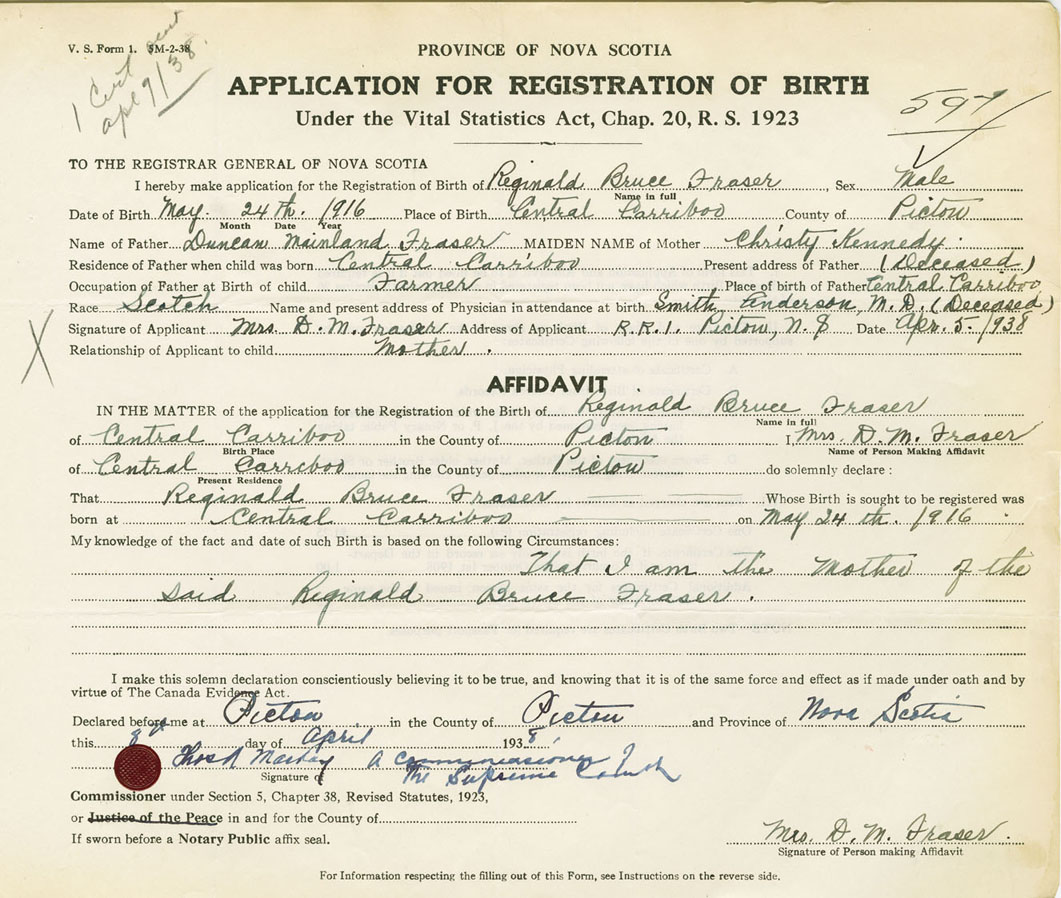 V. S. Form 1. 5M-2-38
1 Cert sent
apl 9/38.
PROVINCE OF NOVA SCOTIA
APPLICATION FOR REGISTRATION OF BIRTH
Under the Vital Statistics Act, Chap. 20, R. S. 1923
597
TO THE REGISTRAR GENERAL OF NOVA SCOTIA
I hereby make application for the Registration of Birth of Reginald Bruce Fraser, Sex Male
Name in full
Date of Birth May. 24th. 1916 Place of Birth Central Carriboo County of Pictou
Month Date Year
Name of Father Duncan Mainland Fraser MAIDEN NAME of Mother Christy Kennedy.
Residence of Father when child was born Central Carriboo Present address of Father (Deceased)
Occupation of Father at Birth of child Farmer Place of birth of Father Central Carriboo
Race Scotch Name and present address of Physician in attendance at birth Smith Anderson, M.D. (Deceased)
Signature of Applicant Mrs. D. M. Fraser Address of Applicant R.R.1. Pictou, N.S Date Apr. 5. 1938
Relationship of Applicant to child Mother.
AFFIDAVIT
IN THE MATTER of the application for the Registration of the Birth of Reginald Bruce Fraser
Name in full
of Central Carriboo in the County of Pictou I, Mrs. D. M. Fraser
Birth Place Name of Person Making Affidavit
of Central Carriboo in the County of Pictou do solemnly declare:
Present Residence
That Reginald Bruce Fraser Whose Birth is sought to be registered was
born at Central Carriboo on May 24 th. 1916.
My knowledge of the fact and date of such Birth is based on the following Circumstances:
That I am the Mother of the
said Reginald Bruce Fraser.
I make this solemn declaration conscientiously believing it to be true, and knowing that it is of the same force and effect as if made under oath and by
virtue of The Canada Evidence Act.
Declared before me at Pictou in the County of Pictou and Province of Nova Scotia
this 8th day of April 1938
A Commissioner
Signature of The Supreme Court
Commissioner under Section 5, Chapter 38, Revised Statutes, 1923,
or Justice of the Peace in and for the County of
If sworn before a Notary Public affix seal.
Mrs. D. M. Fraser.
Signature of Person making Affidavit
For Information respecting the filling out of this Form, see Instructions on the reverse side.